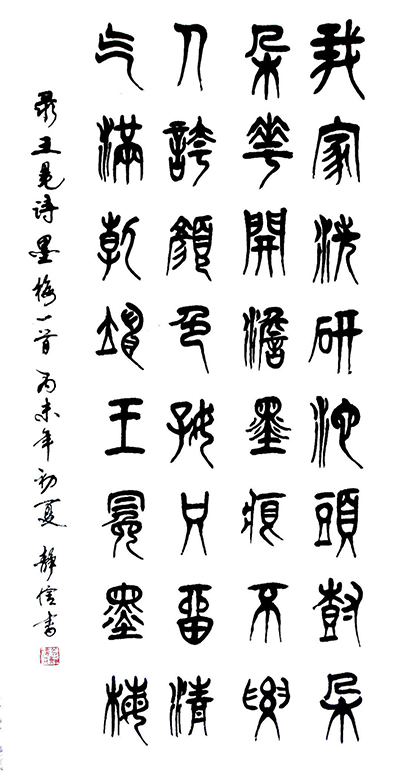 我家洗研池頭尌朵
朵華開澹墨痕不要
人誇顏色好只留清
气滿乾坤王冕墨梅
录王冕诗墨梅一首丙未年初夏靜信书